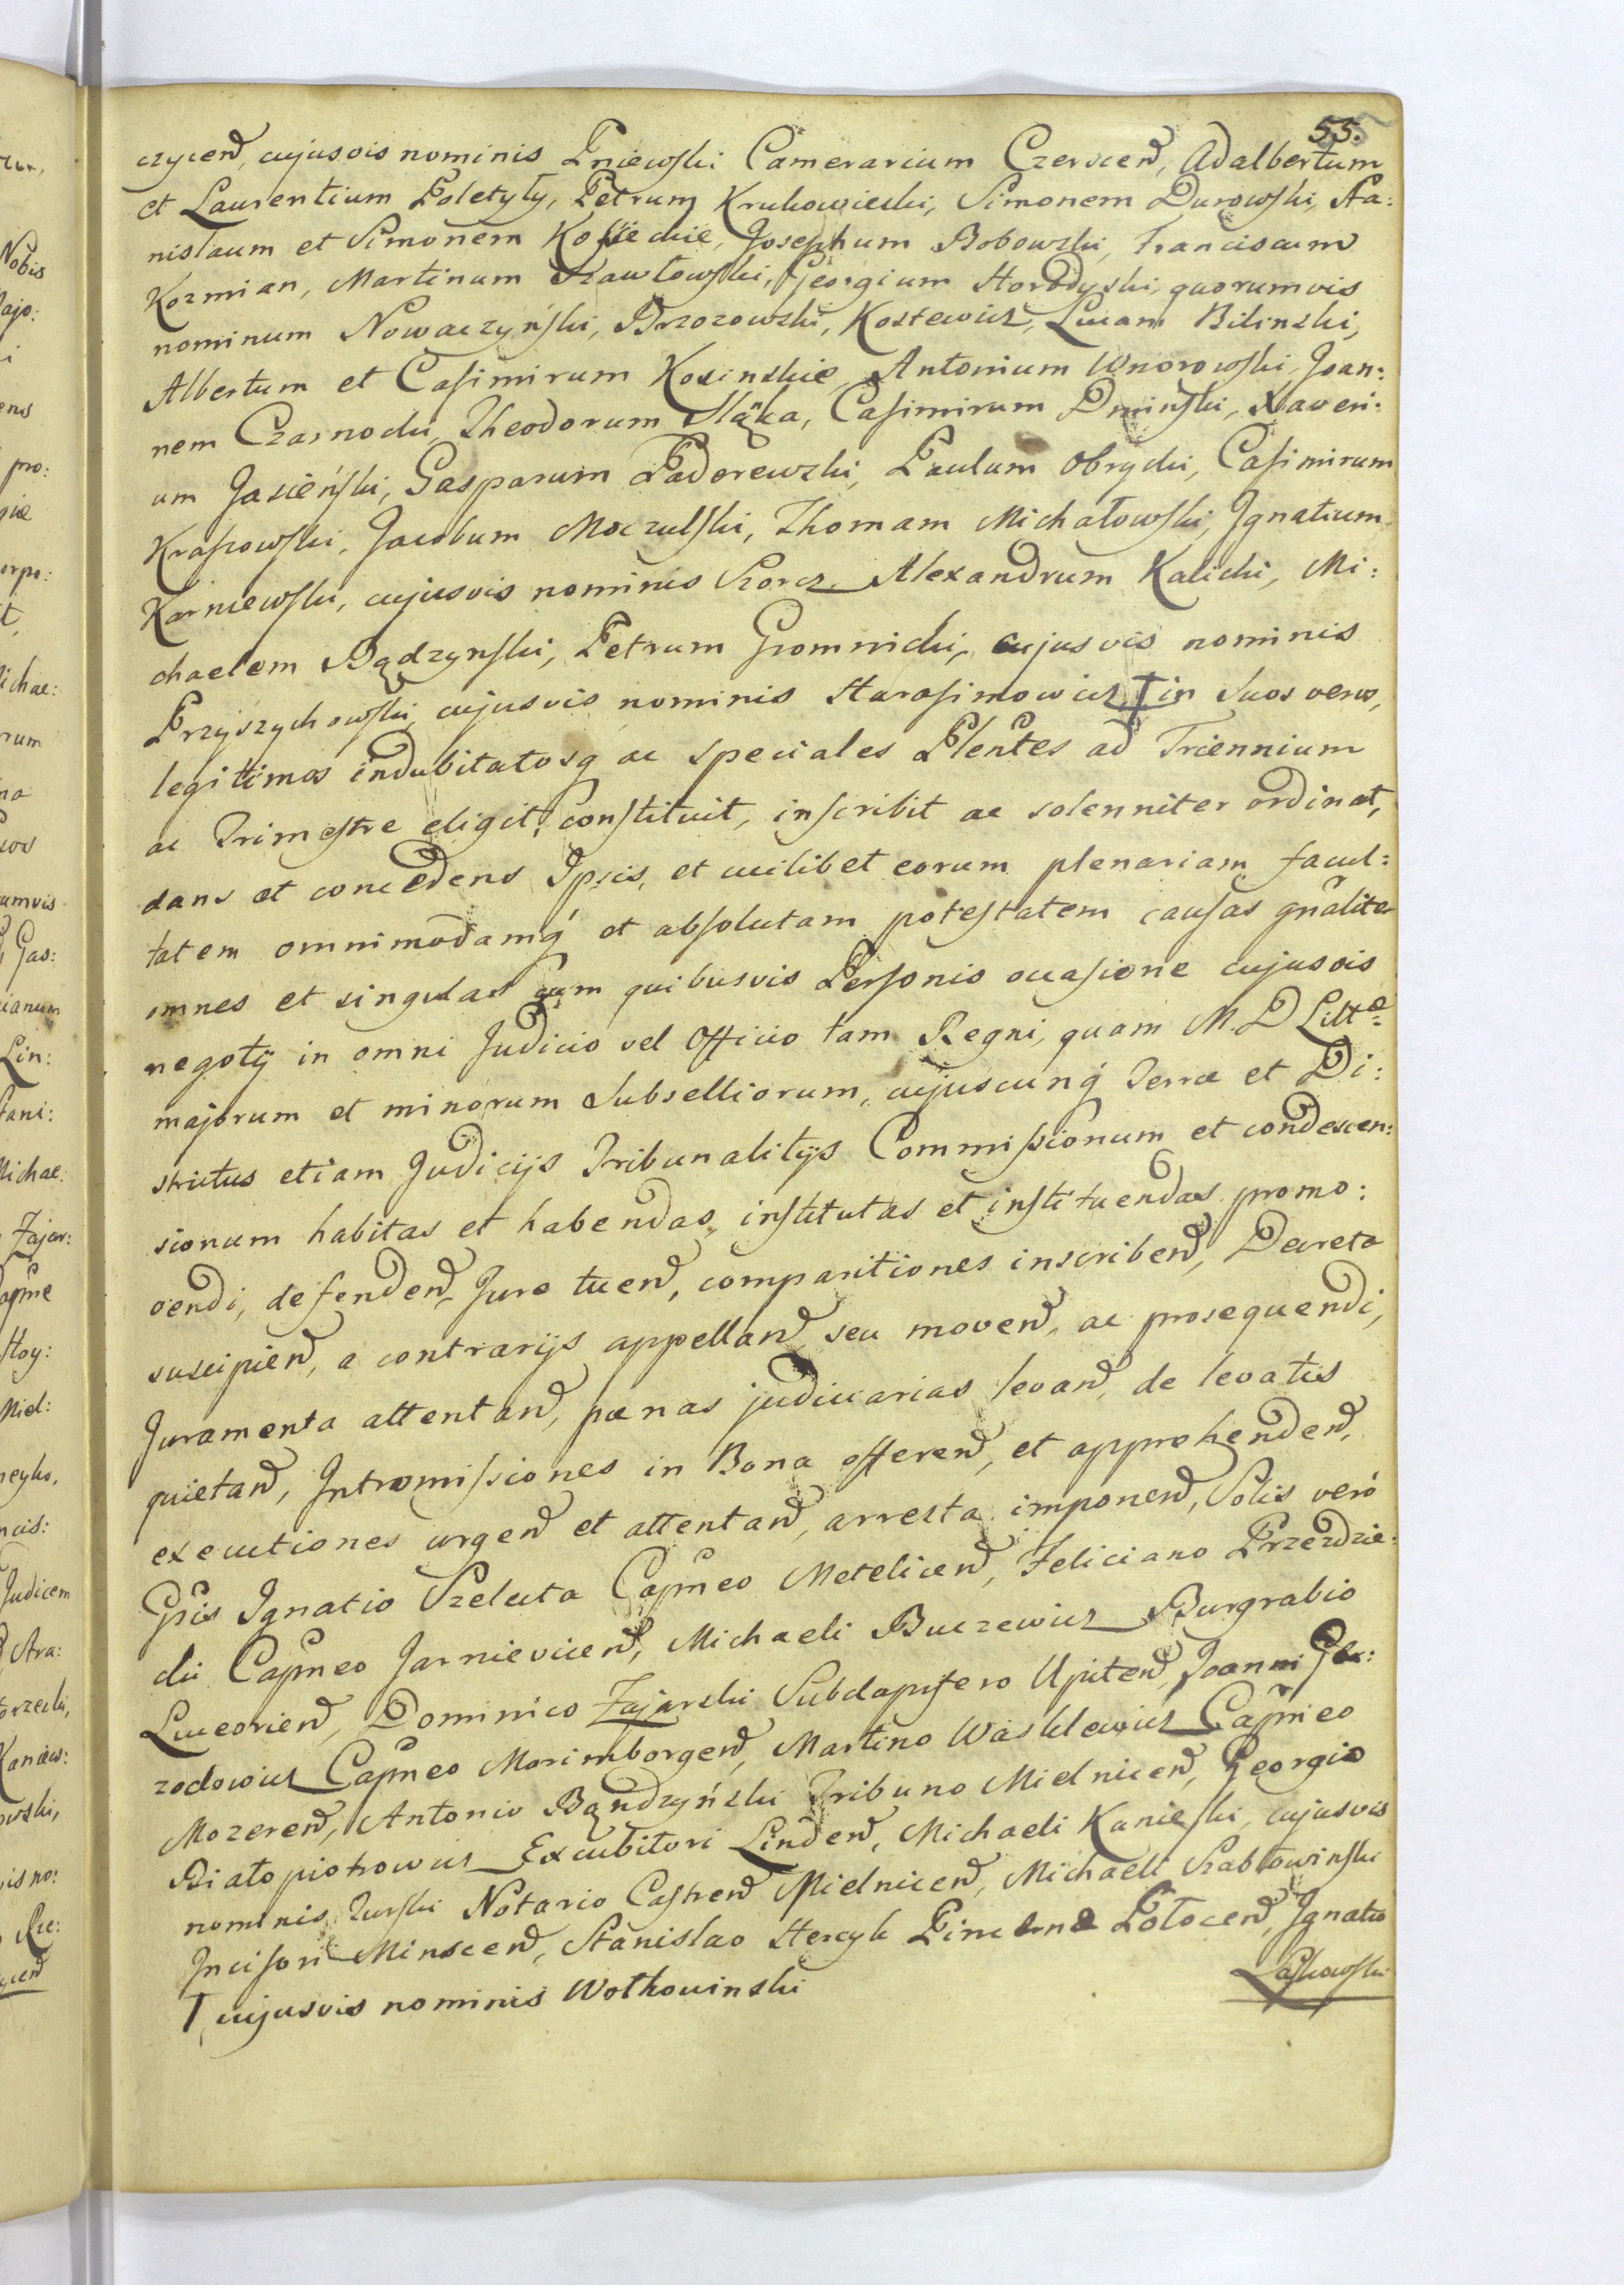 55.
czyceñ, cujusvis nominis Pniewski Camerarium Czersceñ, Adalbertum
et Laurentium Poletyły, Petrum Krukowiecki, Simonem Durowski, Sta:
nislaum et Simonem Kossieckie, Josephum Bobowski, Franciscum
Kozmian, Martinum Szawłowski, Georgium Horodyski, quorumvis
nominum Nowaczyński, Brzozowski, Kostewicz, Lucam Bilinski,
Albertum et Casimirum Kosinskie, Antonium Wnorowski, Joan:
nem Czarnocki, Theodorum Słąka, Casimirum Dminski, Xaveri:
um Jasieński, Gasparum Paderewski, Paulum Obrycki, Casimirum
Krassowski, Jacobum Moczulski, Thomam Michałowski, Ignatium
Karniewski, cujusvis nominis Szorcz, Alexandrum Kalicki, Mi:
chaelem Bądzynski, Petrum Gromnicki, cujusvis nominis
Przyszychowski, cujusvis nominis Harasimowicz, † in suos veros,
legitimos indubitatosq ac speciales Plentes ad Triennium
ac Trimestre eligit, constituit, inscribit ac solenniter ordinat,
dans et concedens Ipsis, et cuilibet eorum plenariam facul:
tatem omnimodamq́ et absolutam potestatem causas gñaliter
omnes et singulas cum quibusvis Personis occasione cujusvis
negotij in omni Judicio vel Officio tam Regni, quam M. D Litt̃e
majorum et minorum Subselliorum, cujuscunq́ Terræ et Di:
strictus etiam Judicijs Tribunalitijs Commissionum et condescen:
sionum habitas et habendas, institutas et instituendas promo:
vendi, defendeñ, Jure tueñ, comparitiones inscribeñ, Decreta
suscipieñ, a contrarijs appellañ, seu moveñ, ac prosequendi,
Juramenta attentañ, pænas judiciarias levañ, de levatis
quietañ, Intromissiones in Bona offereñ, et apprehendeñ,
executiones urgeñ et attentañ, arresta imponeñ, Solis verò
Gsis Ignatio Szeluta Capñeo Meteliceñ, Feliciano Przezdzie:
cki Capñeo Jarnieviceñ, Michaeli Buczewicz Burgrabio
Luceorieñ, Dominico Zajarski Subdapifero Upiteñ, Joanni
zodowicz Capñeo Morimborgeñ, Martino Waśklewicz Capñeo
Mozereñ, Antonio Bąndzyński Tribuno Mielniceñ, Georgio
Białopiotrowicz Excubitori Lindeñ, Michaeli Kanieski, cujusvis
nominis Turski Notario Castreñ Mielniceñ, Michaeli Szabłowinski
Incisori Minsceñ, Stanislao Hercyk Pincernæ Połoceñ, Ignatio
† cujusvis nominis Wołkowinski
Laskowski